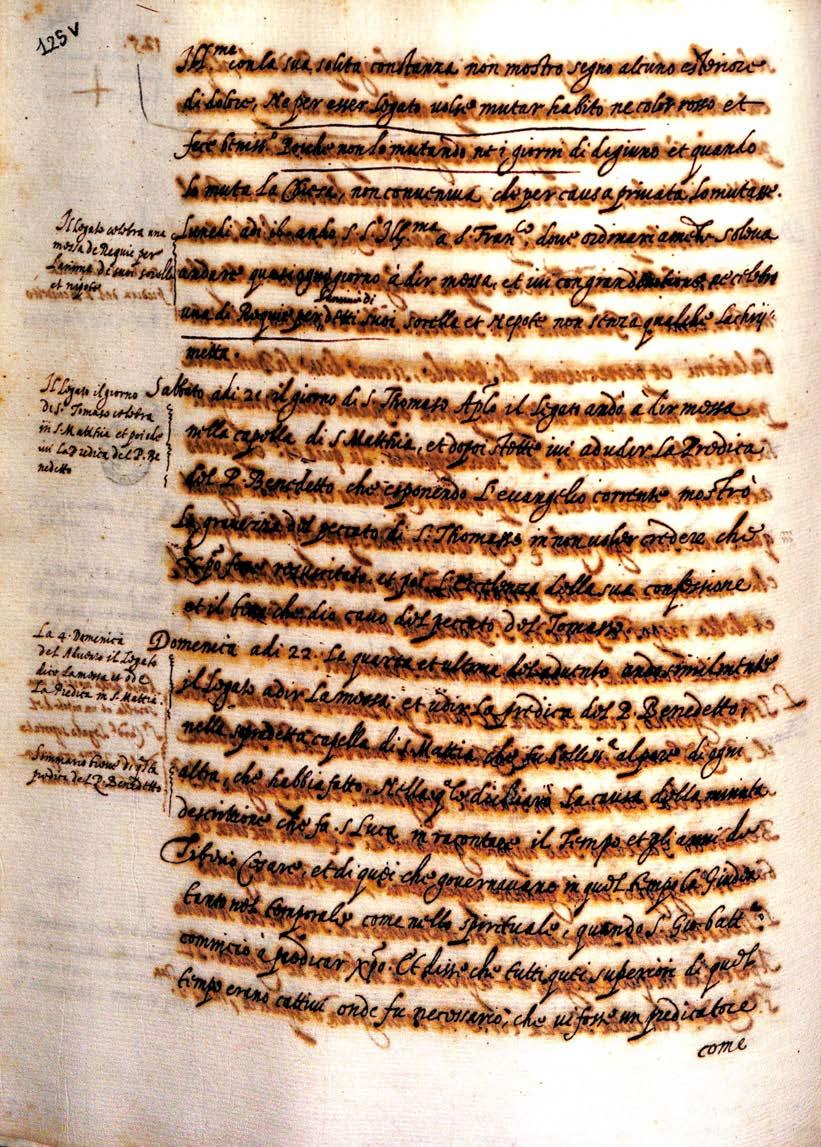 125v
Ill.ma con la sua solita constanza non mostro segno alcuno esteriore
di dolore, Ne per esser Legato volse mutar habito ne color rosso et
fece beniss.o Poiche non lo mutando ne i giorni di digiuno et quando
lo muta la Chiesa, non conveniva che per causa privata lo mutasse.
Il Legato celebra una
messa de Requie per
l'anima di suoi sorella
et nipote
Lunedi adi 16 ando S. S. Ill.ma a S. Fran.co, dove ordinariamente soleva
andare quasi ogni giorno à dir messa, et ivi con gran devotione ne celebro
l'anima di
una di Requie per detti suoi sorella et Nepote non senza qualche lachri-
metta.
Il Legato il giorno
di S. Tomaso celebra
in S. Matthia et poi ode
ivi la Predica del P. Be
nedetto
Sabbato adi 21 il giorno di S. Thomaso Aplo il Legato andò à dir messa
nella capella di S. Matthia, et dopoi stette ivi ad udir la Predica
del P. Benedetto che esponendo l'evangelio corrente mostrò
la gravezza del peccato di S. Thomasso in non voler credere che
Xpo fosse resuscitato, et poi l'eccellenza della sua confessione
et il bene che dio cavo del peccato del Tomasso.
La 4. Domenica
del Advento il Legato
dice la messa et ode
la Predica in S. Mattia.
Domenica adi 22. La quarta et ultima del advento ando similmente
il Legato a dir la messa et udir la predica del P. Benedetto,
nella sopradetta capella di S. Mattia che fu belliss.a al pare di ogni
Sommario breve di q.sta
predica del P. Benedetto
altra, che habbia fatto. Nella q.le dichiarò la causa della minuta
descrittione che fa S. Luca in racontare il tempo et gli anni de
Tiberio Cesare, et di quei che governavano in quel tempo la Giudea
tanto nel temporale come nello spirituale, quando S. Gio. Batt.a
comincio à predicar Xpo. Et disse che tutti quei superiori di quel
tempo erano cattivi onde fu necessario, che vi fosse un predicatore
come